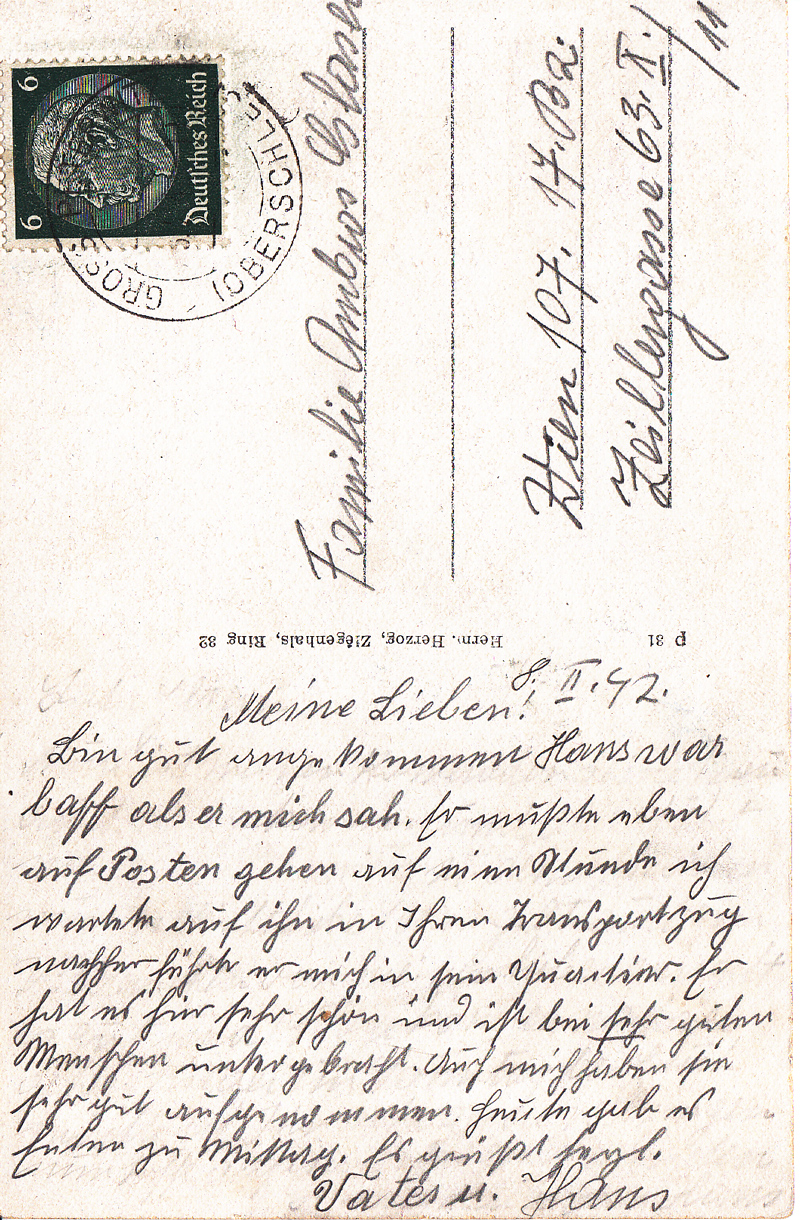 6 6
Deutsches Reich
GROSS (OBERSCHL
Familie Ambros
Wien 107. 17. Bz.
Zeillergasse 63. II./11
Herm. Herzog, Ziegenhals, Ring 32
P 31
8. II. 42.
Meine Lieben!
Bin gut angekommen Hans war
baff als er mich sah. Er mußte eben
auf Posten gehen auf eine Stunde ich
wartete auf ihn in Ihren Transportzug
nachher führte er mich in sein Quartier. Er
hat es hier sehr schön und ist bei sehr guten
Menschen untergebracht. Auch mich haben sie
sehr gut aufgenommen. Heute gab es
Enten zu Mittag. Es grüßt herzl.
Vater u. Hans